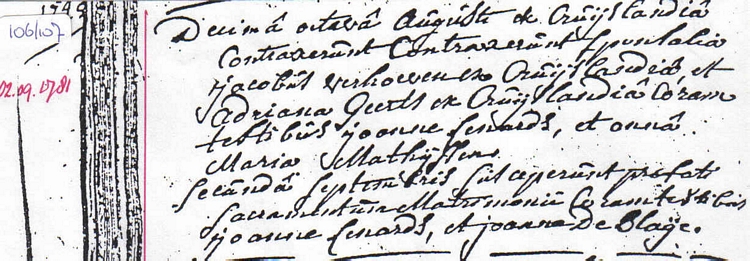 106/107
02.09.1781
Decimâ octavâ Augusti ex Cruÿslandiâ
Contraxerunt Contraxerunt sponsalia
jacobus verhoeven ex Cruÿslandiâ, et
Adriana Geerts ex Cruÿslandiâ Coram
testibus joanne Lenards, et annâ
Mariâ Mathÿssen
Secundâ Septembris susceperunt praefati
Sacramentum Matrimonii Coram testibus
joanne Lenards, et joanne De Blaÿe.